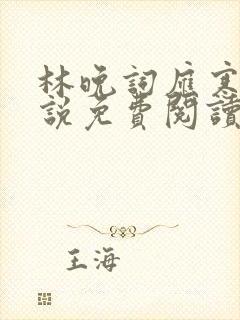 林晚詞雁寒
說免費閱讀
王海